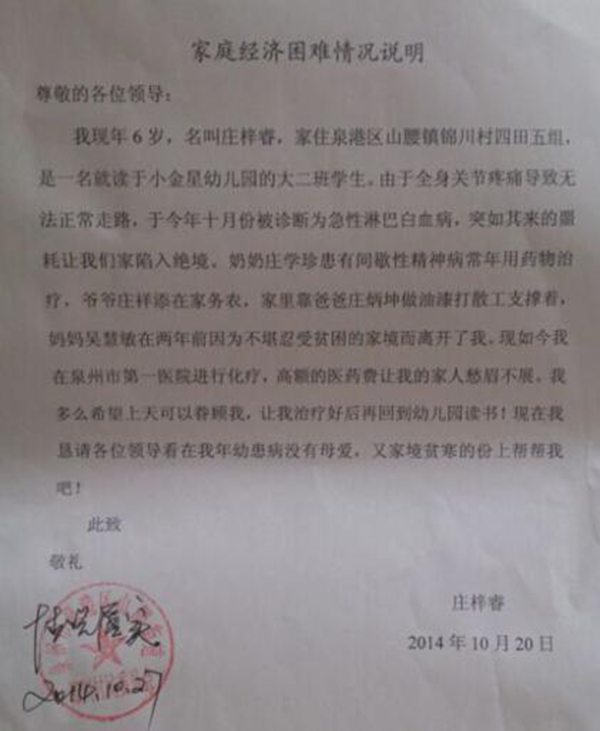 家庭经济困难情况说明
尊敬的各位领导：
我现年6岁，名叫庄梓睿，家住泉港区山腰镇锦川村四田五组，
是一名就读于小金星幼儿园的大二班学生。由于全身关节疼痛导致无
法正常走路，于今年十月份被诊断为急性淋巴白血病，突如其来的噩
耗让我们家陷入绝境。奶奶庄学珍患有间歇性精神病常年用药物治
疗，爷爷庄样添在家务农，家里靠爸爸庄炳坤做油漆打散工支撑着，
妈妈吴慧敏在两年前因为不堪忍受贫困的家境而离开了我。现如今我
在泉州市第一医院进行化疗，高额的医药费让我的家人愁眉不展。我
多么希望上天可以眷顾我，让我治疗好后再回到幼儿园读书！现在我
恳请各位领导看在我年幼患病没有母爱，又家境贫寒的份上帮帮我
吧！
此致
敬礼
庄梓睿
2014年10月20日
2014.10.27